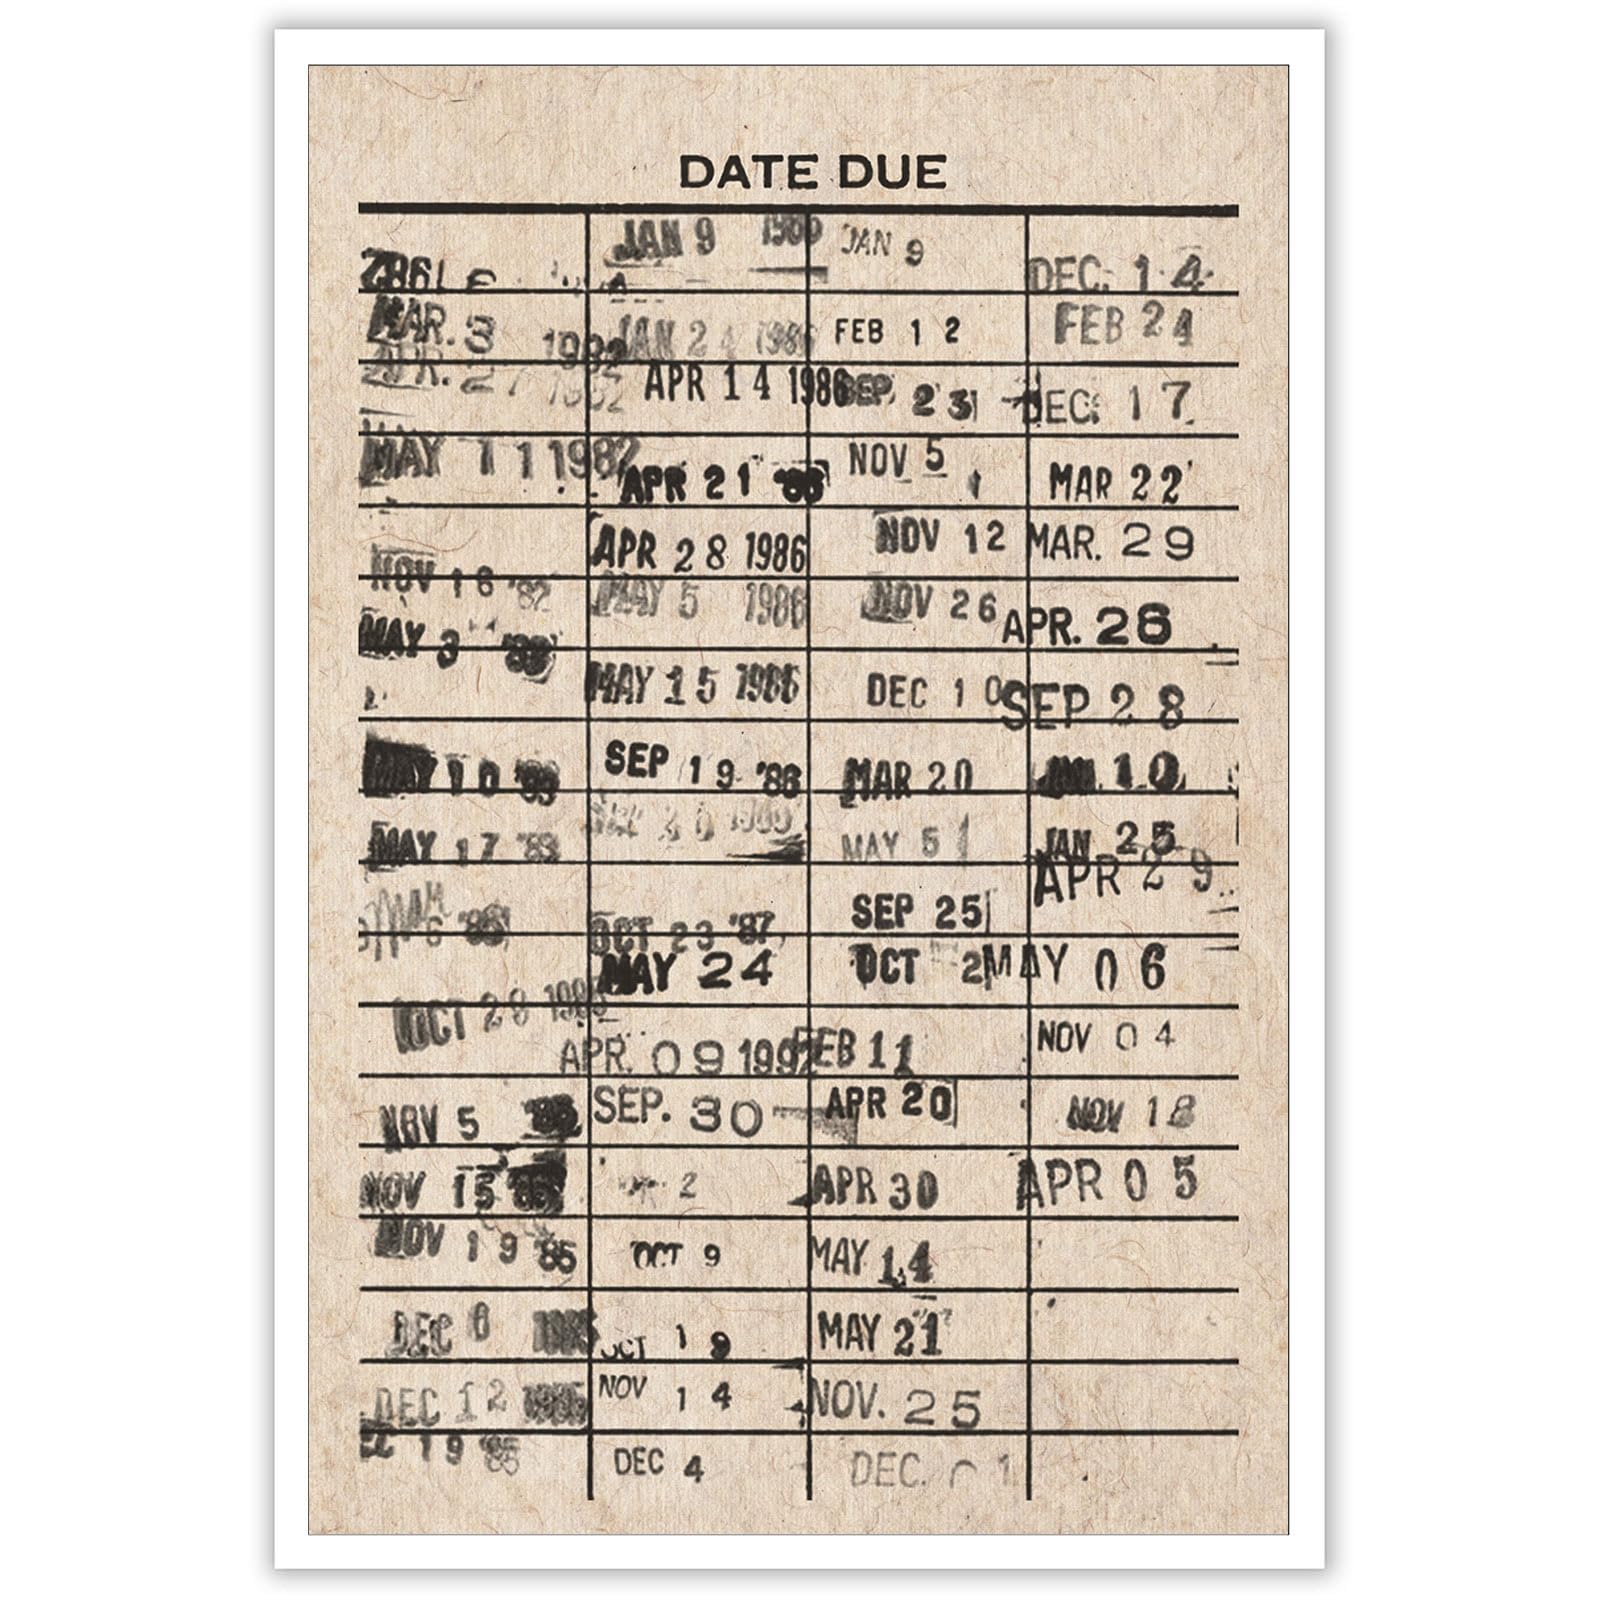 DATE DUE
MAR. 3 1982
APR. 27 1982
MAY 11 1982
NOV 16 '82
MAY 3 '83
MAY 10 '83
MAY 17 '83
OCT 28 198
NOV 5
NOV 15 '85
NOV 19 '85
DEC 6 1985
DEC 12 1985
EC 19 '85
JAN 9 1986
JAN 24 1986
APR 14 1986
APR 21 '86
APR 28 1986
MAY 5 1986
MAY 15 1986
SEP 19 '86
SEP 26 1986
OCT 23 '87
MAY 24
APR. 09 1992
SEP. 30
2
OCT 9
OCT 19
NOV 14
DEC 4
JAN 9
FEB 12
SEP. 23
NOV 5
NOV 12
NOV 26
DEC 10
MAR 20
MAY 5
SEP 25
OCT 2
FEB 11
APR 20
APR 30
MAY 14
MAY 21
NOV. 25
DEC. 1
DEC. 14
FEB 24
DEC. 17
MAR 22
MAR. 29
APR. 26
SEP 28
JAN 10
JAN 25
APR 29
MAY 06
NOV 04
NOV 18
APR 05